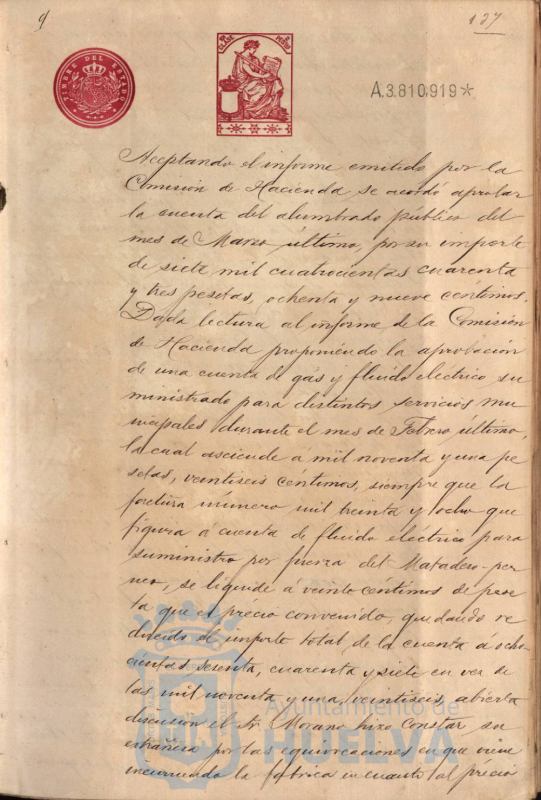 9
137
TIMBRE DEL ESTADO
CLASE
A.3.810.919*
Aceptando el informe emitido por la
Comisión de Hacienda se acordó aprobar
la cuenta del alumbrado público del
mes de Marzo último, por su importe
de siete mil cuatrocientas cuarenta
y tres pesetas, ochenta y nueve centimos.
Dada lectura al informe de la Comisión
de Hacienda proponiendo la aprobación
de una cuenta de gás y fluido eléctrico su
ministrado para distintos servicios mu
nicipales durante el mes de Febrero último,
la cual asciende a mil noventa y una pe
setas, veintiseis céntimos, siempre que la
factura número mil treinta y ocho que
figura á cuenta de fluido eléctrico para
suministro por fuerza del Matadero-per
neo, se liquide á veinte céntimos de pese
ta que es précio convenido, quedando re
ducido el importe total de la cuenta á ocho
cientas sesenta, cuarenta y siete en vez de
las mil noventa y una, veintiseis, abierta
discusión el Sr. Morano hizo constar su
extrañeza por las equivocaciones en que viene
incurriendo la fábrica en cuanto al précio
Ayuntamiento de
HUELVA